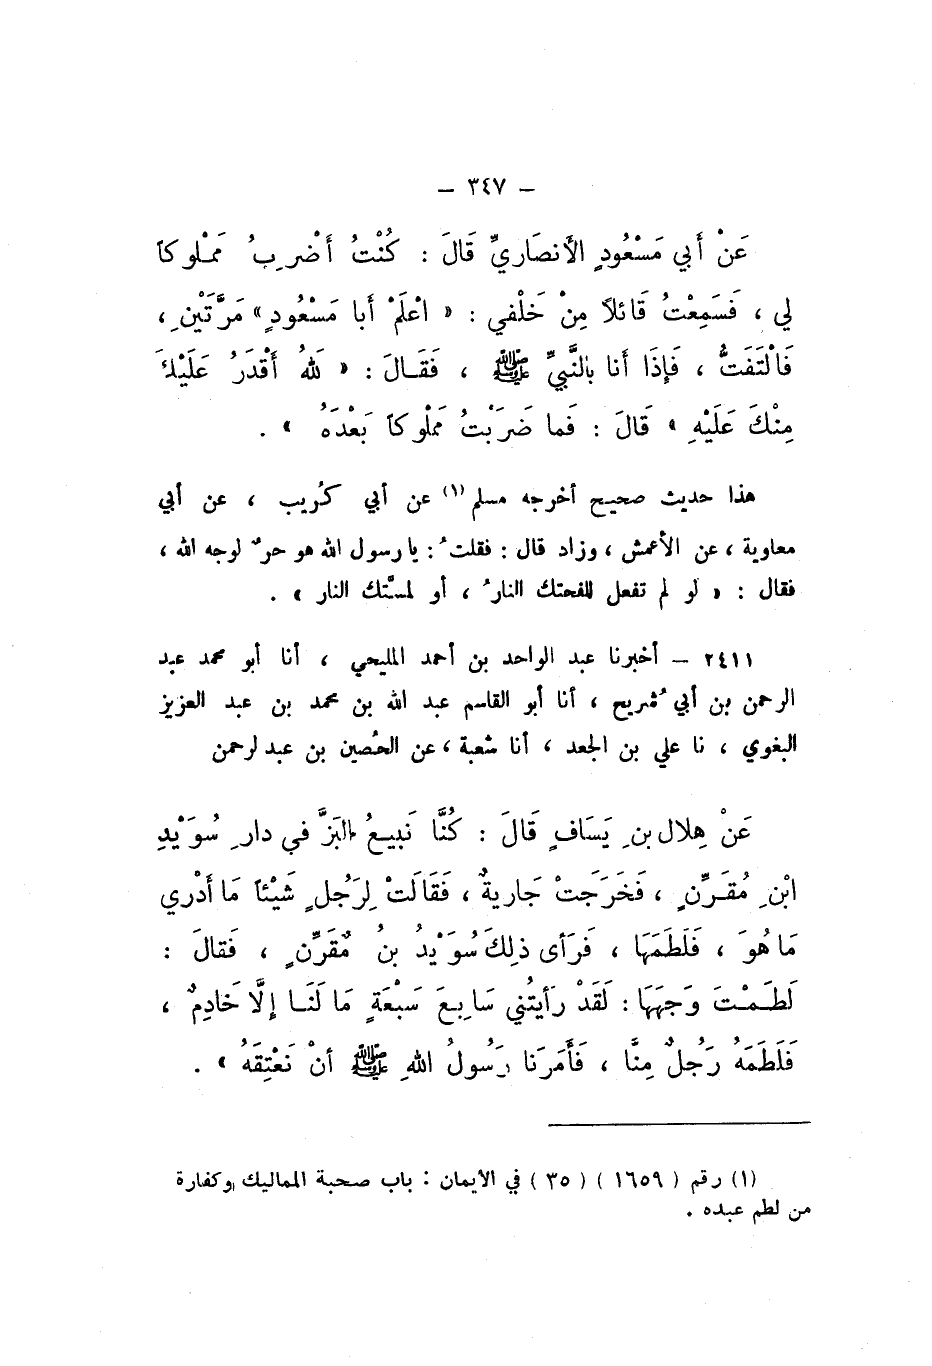 – ٣٤٧ –
عَنْ أَبي مَسْعُودٍ الأَنصَاريِّ قَالَ : كُنْتُ أَضْرِبُ مَمْلوكاً
لي ، فَسَمِعْتُ قَائلاً مِنْ خَلْفي : « اعْلَمْ أَبا مَسْعُودٍ» مَرَّتَيْنِ ،
فَالْتَفَتُّ ، فَإِذَا أَنا بالنَّبيِّ ﷺ ، فَقَـالَ : « للهُ أَقْدَرُ عَلَيْكَ
مِنْكَ عَلَيْهِ » قَالَ : فَما ضَرَبْتُ مَمْلوكاً بَعْدَهُ » .
هذا حديث صحيح أخرجه مسلم (١) عن أبي كُريب ، عن أبي
معاوية ، عن الأعمش ، وزاد قال : فقلتُ : يا رسول الله هو حرٌ لوجه الله ،
فقال : « لو لم تفعل للفحتك النارُ ، أو لمسَّتك النار » .
٢٤١١ – أخبرنا عبد الواحد بن أحمد المليحي ، أنا أبو محمد عبد
الرحمن بن أبي شُريح ، أنا أبو القاسم عبد الله بن محمد بن عبد العزيز
البغوي ، نا علي بن الجعد ، أنا شعبة ، عن الحُصين بن عبد لرحمن
عَنْ هِلال بنِ يَسَافٍ قَالَ : كُنَّا نَبيـعُ البَزَّ في دارِ سُوَيْدِ
ابْنِ مُقَـرِّنٍ ، فَخَرَجَتْ جَاريةٌ ، فَقَالَتْ لِرَجُلٍ شَيْئاً مَا أَدْري
مَا هُوَ ، فَلَطَمَهَا ، فَرَأَى ذلِكَ سُوَيْدُ بنُ مُقَرِّنٍ ، فَقالَ :
لَطَـمْـتَ وَجهَهَا : لَقَدْ رَأَيتُني سَابِـعَ سَبْعَةٍ مَا لَنَـا إِلَّا خَادِمٌ ،
فَلَطَمَهُ رَجُلٌ مِنَّا ، فَأَمَرَنَا رَسُولُ اللهِ ﷺ أنْ نَعْتِقَهُ » .
(١) رقم ( ١٦٥٩ ) ( ٣٥ ) في الأيمان : باب صحبة المماليك وكفارة
من لطم عبده .